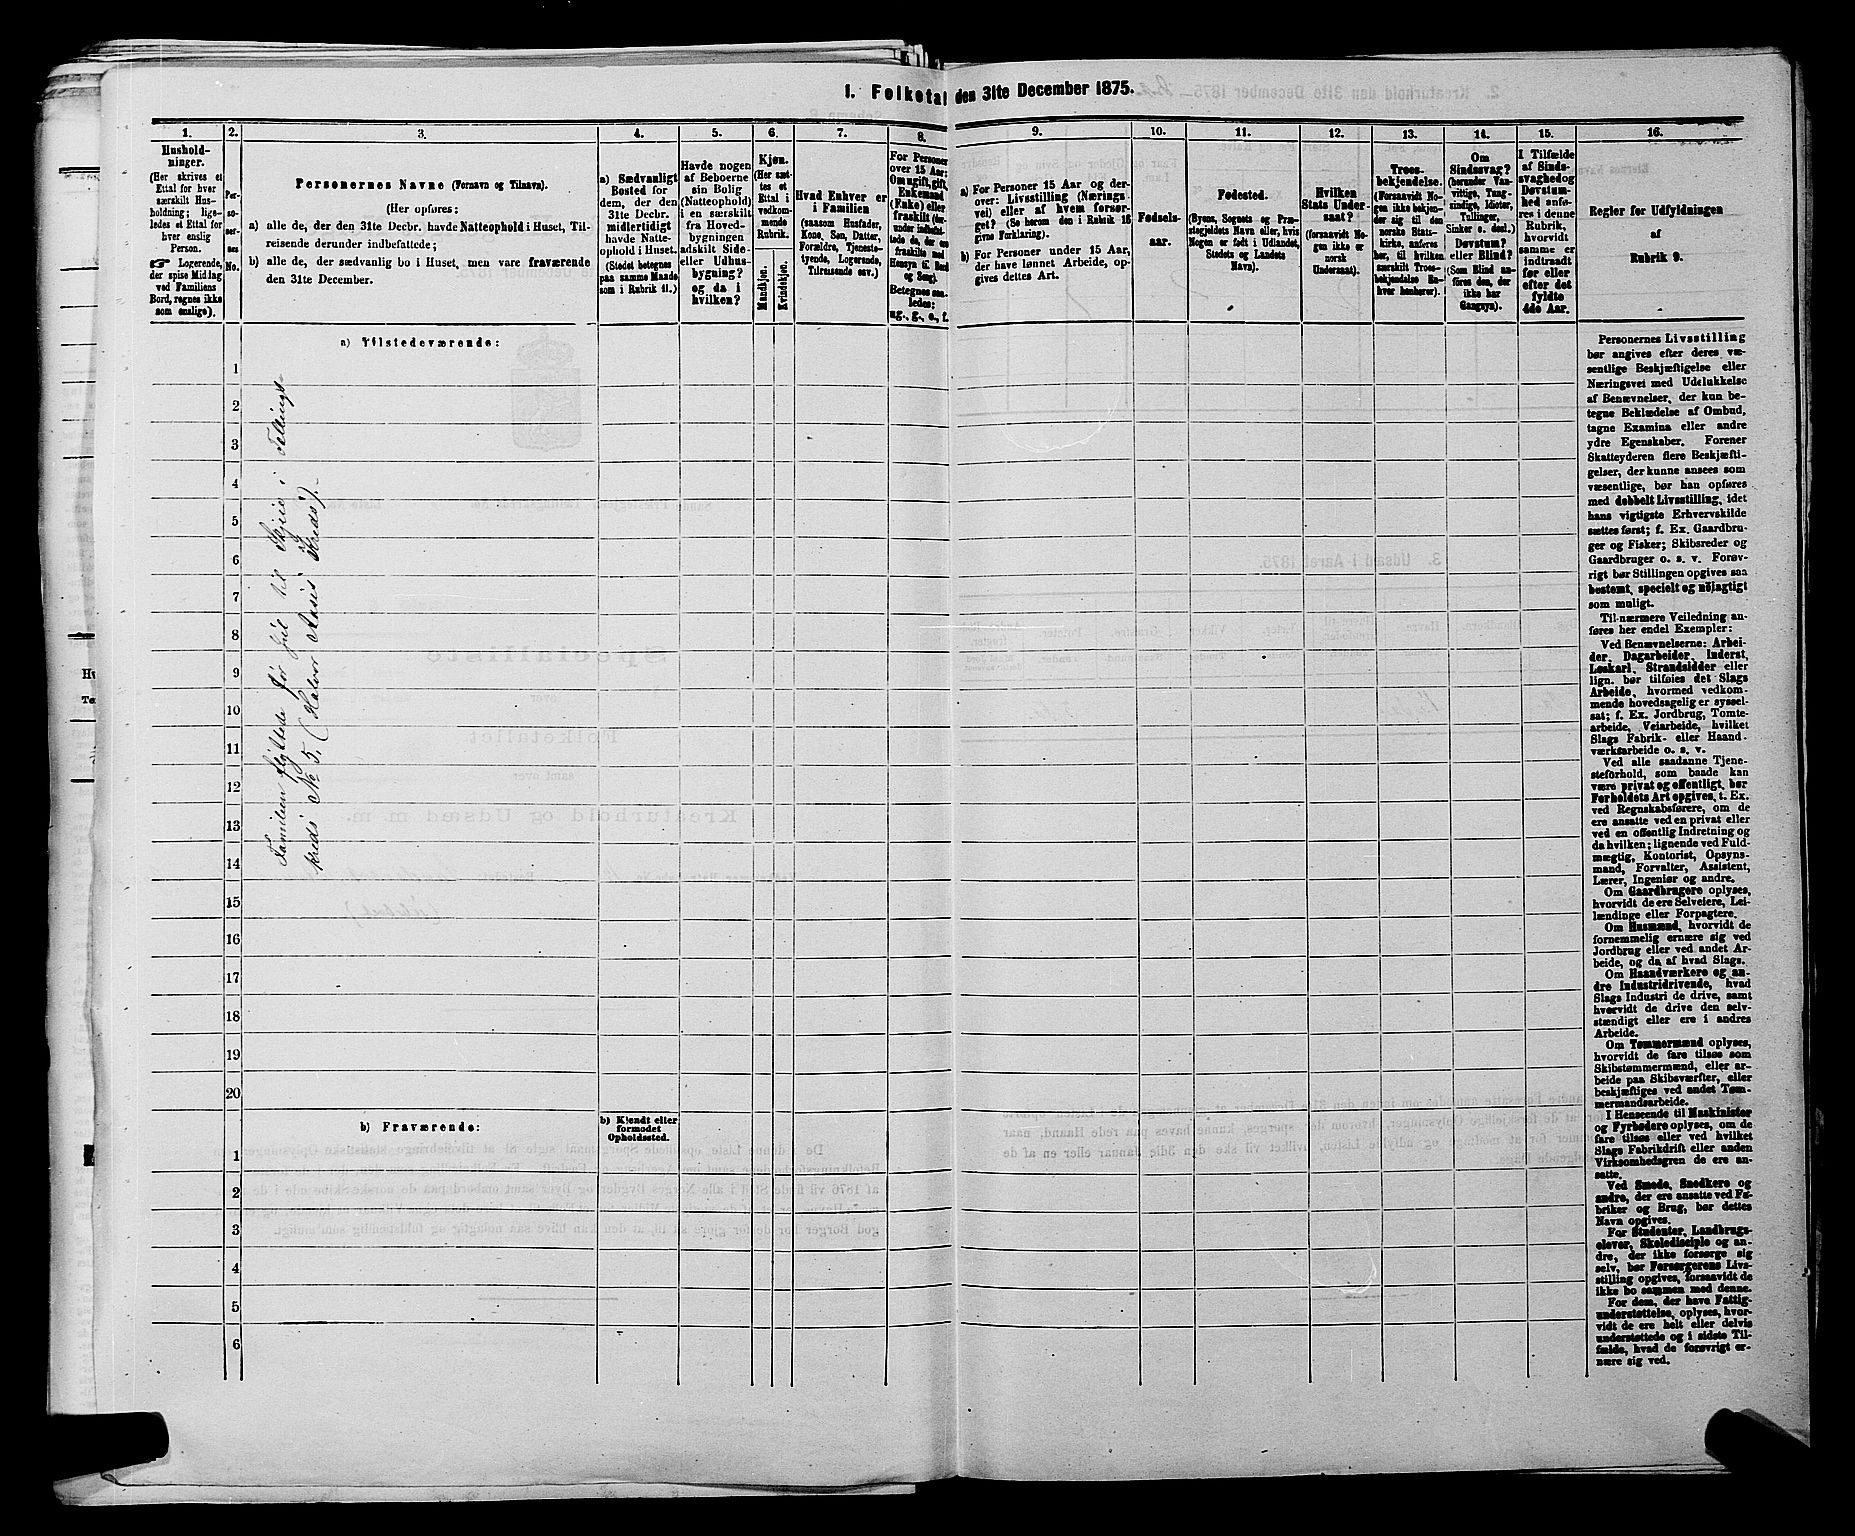 1. Folketal den 31te December 1875.
1.
Hushold-
ninger.
(Her skrives et
Ettal for hver
særskilt Hus-
holdning; lige-
ledes et Ettal for
hver enslig
Person.
☛ Logerende,
der spise Middag
ved Familiens
Bord, regnes ikke
som enslige).
2.
Per-
so-
ner-
nes
No.
3.
Personernes Navne (Fornavn og Tilnavn).
(Her opføres:
a) alle de, der den 31te Decbr. havde Natteophold i Huset, Til-
reisende derunder indbefattede;
b) alle de, der sædvanlig bo i Huset, men vare fraværende
den 31te December.
4.
a) Sædvanligt
Bosted for
dem, der den
31te Decbr.
midlertidigt
havde Natte-
ophold i Huset.
(Stedet betegnes
paa samme Maade
som i Rubrik 11.)
5.
Havde nogen
af Beboerne
sin Bolig
(Natteophold)
i en særskilt
fra Hoved-
bygningen
adskilt Side-
eller Udhus-
bygning?
og da i
hvilken?
6.
Kjøn.
(Her sæt-
tes et
Ettal i
vedkom-
mende
Rubrik.
Mandkjøn.
Kvindekjøn.
7.
Hvad Enhver er
i Familien
(saasom Husfader,
Kone, Søn, Datter,
Forældre, Tjeneste-
tyende, Logerende,
Tilreisende osv.)
8.
For Personer
over 15 Aar:
Om ugift, gift,
Enkemand
(Enke) eller
fraskilt (der-
under indbefat-
tede de, der ere
fraskilte med
Hensyn til Bord
og Seng).
Betegnes saa-
ledes:
ug., g., e., f.
9.
a) For Personer 15 Aar og der-
over: Livsstilling (Nærings-
vei) eller af hvem forsør-
get? (Se herom den i Rubrik 16
givne Forklaring).
b) For Personer under 15 Aar,
der have lønnet Arbeide, op-
gives dettes Art.
10.
Fødsels-
aar.
11.
Fødested.
(Byens, Sognets og Præ-
stegjeldets Navn eller, hvis
Nogen er født i Udlandet,
Stedets og Landets
Navn).
12.
Hvilken
Stats Under-
saat?
(forsaavidt No-
gen ikke er
norsk
Undersaat).
13.
Troes-
bekjendelse.
(Forsaavidt No-
gen ikke bekjen-
der sig til den
norske Stats-
kirke, anføres
her, til hvilken
særskilt Troes-
bekjendelse En-
hver henhører).
14.
Om
Sindssvag?
(herunder Van-
vittige, Tung-
sindige, Idioter,
Tullinger,
Sinker o. desl.)
Døvstum?
eller Blind?
(Som Blind an-
føres den, der
ikke har
Gangsyn).
15.
I Tilfælde
af Sinds-
svaghed og
Døvstum-
hed anfø-
res i denne
Rubrik,
hvorvidt
samme er
indtraadt
før eller
efter det
fyldte
4de Aar.
16.
Regler for Udfyldningen
af
Rubrik 9.
a) Tilstedeværende:
1
2
3
4
5
6
7
8
9
10
11
12
13
14
15
16
17
18
19
20
Familien flyttede før Jul til Skjeie i Tellings-
kreds No 5, (Halvor Aases Kreds).
b) Fraværende:
b) Kjendt eller
formodet
Opholdssted.
1
2
3
4
5
6
Personernes Livsstilling
bør angives efter deres væ-
sentlige Beskjæftigelse eller
Næringsvei med Udelukkelse
af Benævnelser, der kun be-
tegne Beklædelse af Ombud,
tagne Examina eller andre
ydre Egenskaber. Forener
Skatteyderen flere Beskjæfti-
gelser, der kunne ansees som
væsentlige, bør han opføres
med dobbelt Livsstilling, idet
hans vigtigste Erhvervskilde
sættes først; f. Ex. Gaardbru-
ger og Fisker; Skibsreder og
Gaardbruger o. s. v. Forøv-
rigt bør Stillingen opgives saa
bestemt, specielt og nøiagtigt
som muligt.
Til nærmere Veiledning an-
føres her endel Exempler:
Ved Benævnelserne: Arbei-
der, Dagarbeider, Inderst,
Løskarl, Strandsidder eller
lign. bør tilføies det Slags
Arbeide, hvormed vedkom-
mende hovedsagelig er syssel-
sat; f. Ex. Jordbrug, Tomte-
arbeide, Veiarbeide, hvilket
Slags Fabrik- eller Haand-
værksarbeide o. s. v.
Ved alle saadanne Tjene-
steforhold, som baade kan
være privat og offentligt, bør
Forholdets Art opgives, t. Ex.
ved Regnskabsførere, om de
ere ansatte ved en privat eller
ved en offentlig Indretning og
da hvilken; lignende ved Fuld-
mægtig, Kontorist, Opsyns-
mand, Forvalter, Assistent,
Lærer, Ingeniør og andre.
Om Gaardbrugere oplyses,
hvorvidt de ere Selveiere, Lei-
lændinge eller Forpagtere.
Om Husmænd, hvorvidt de
fornemmelig ernære sig ved
Jordbrug eller ved andet Ar-
beide, og da af hvad Slags.
Om Haandværkere og an-
dre Industridrivende, hvad
Slags Industri de drive, samt
hvorvidt de drive den selv-
stændigt eller ere i andres
Arbeide.
Om Tømmermænd oplyses,
hvorvidt de fare tilsøs som
Skibstømmermænd, eller ar-
beide paa Skibsværfter, eller
beskjæftiges ved andet Tøm-
mermandsarbeide.
I Henseende til Maskinister
og Fyrbødere oplyses, om de
fare tilsøs eller ved hvilket
Slags Fabrikdrift eller anden
Virksomhedsgren de ere an-
satte.
Ved Smede, Snedkere og
andre, der ere ansatte ved Fa-
briker og Brug, bør dettes
Navn opgives.
For Studenter, Landbrugs-
elever, Skoledisciple og an-
dre, der ikke forsørge sig
selv, bør Forsørgerens Livs-
stilling opgives, forsaavidt de
ikke bo sammen med denne.
For dem, der have Fattig-
understøttelse, oplyses, hvor-
vidt de ere helt eller delvis
understøttede og i sidste Til-
fælde, hvad de forøvrigt er-
nære sig ved.